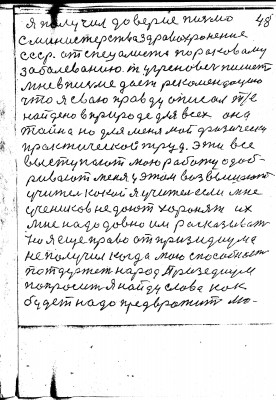 48
я получил доверие письмо
с министерства здравохронение
ссср. от специалиста по раковому
заболеванию. т. угренович пишет
мне в письме дает рекомендацию
что я сваю правду описал т/е
найдено в природе для всех она
тайна но для меня мой физически
практический труд. эти все
выступают мою работу одоб-
ривают меня у этом возвышают
учител 
я учителем если мне
учеников не дают хоронят их
мне надо давно им расказыват
но я еще право от призидиума
не получил когда мою способност
потдержет народ призедиум
попросит я найду слова как
будет надо предвратит мо-